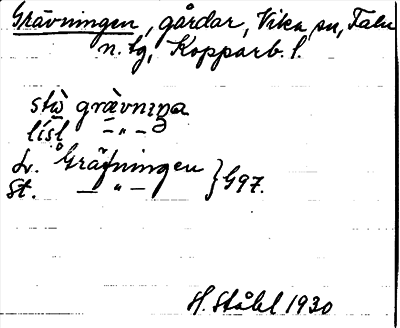 Grävningen, gårdar, Vika sn, Falu
n. tg, Kopparb. l.
stù grævnıŋa
lı̀sl — " —
Lr. Gräfningen
St. — " — } G97.
H. Ståhl 1930